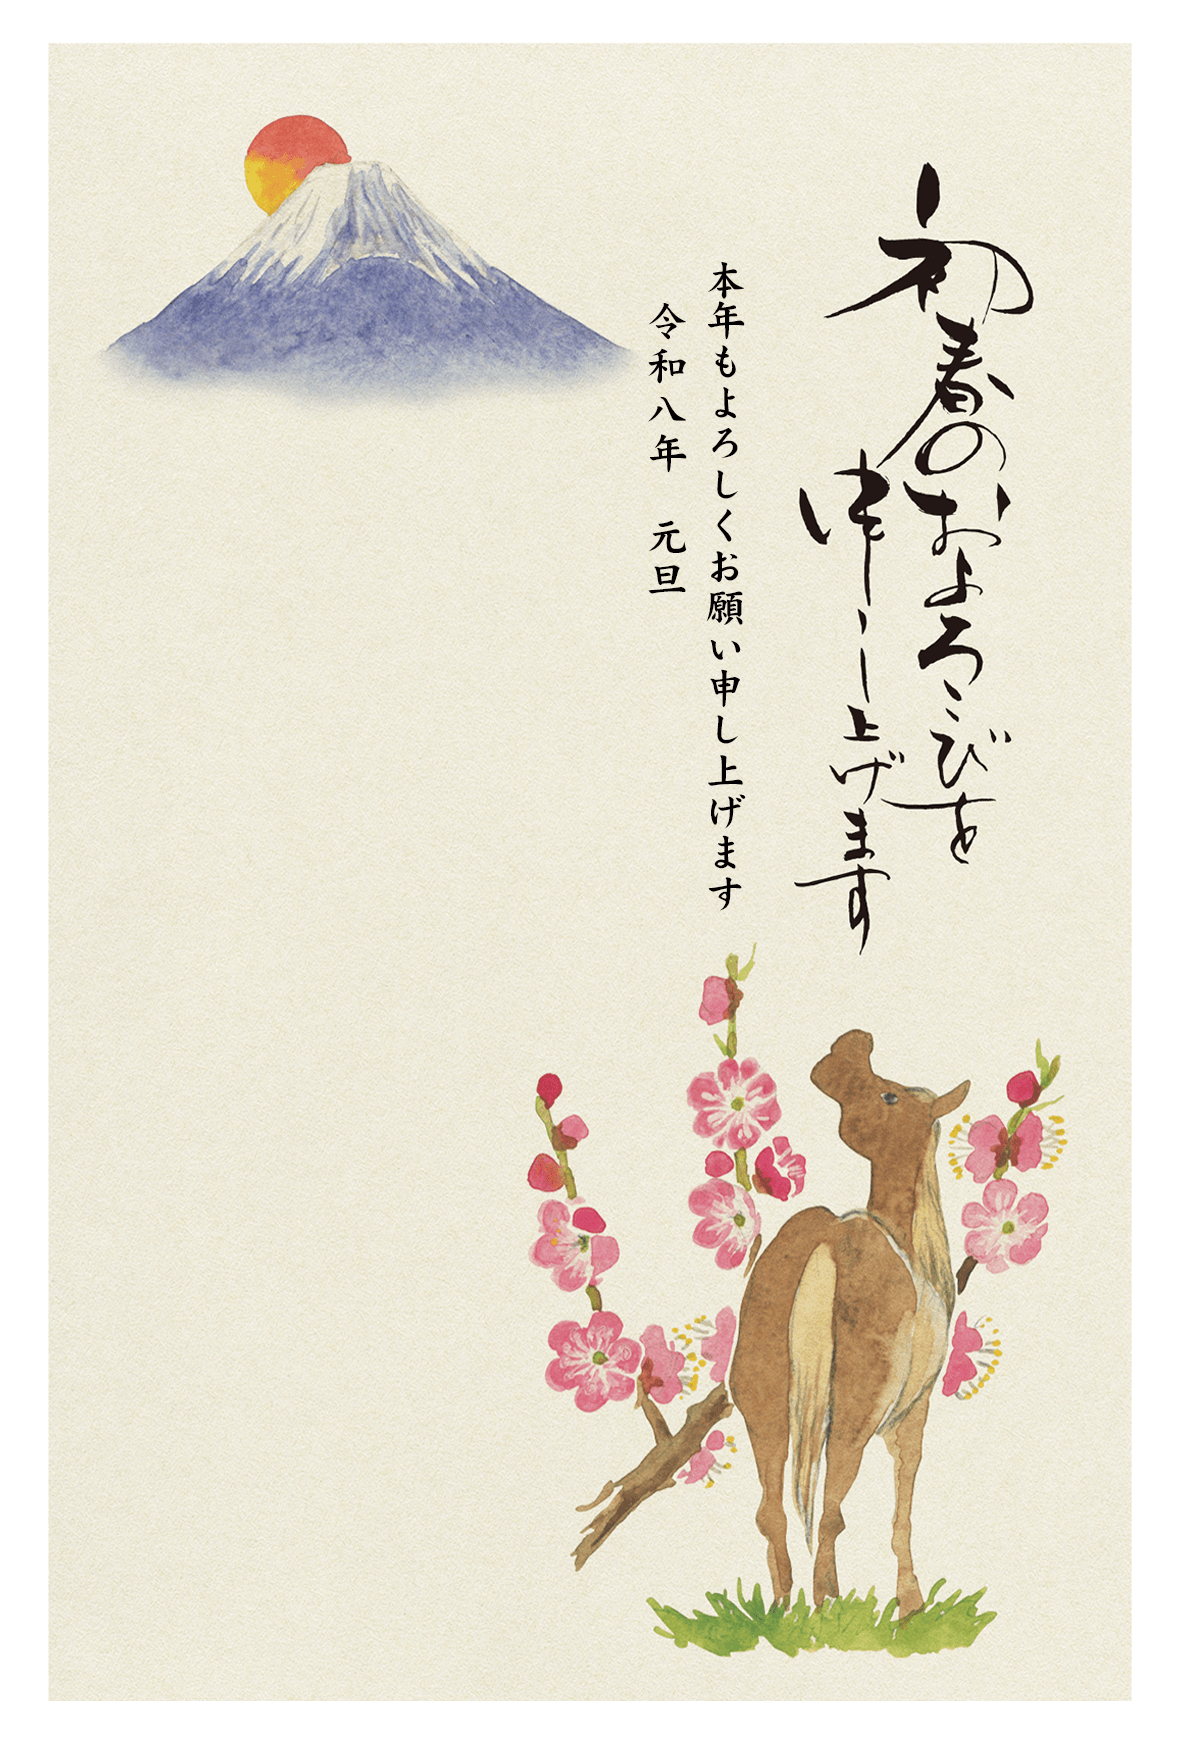 初春のおよろこびを
申し上げます
本年もよろしくお願い申し上げます
令和八年　元旦